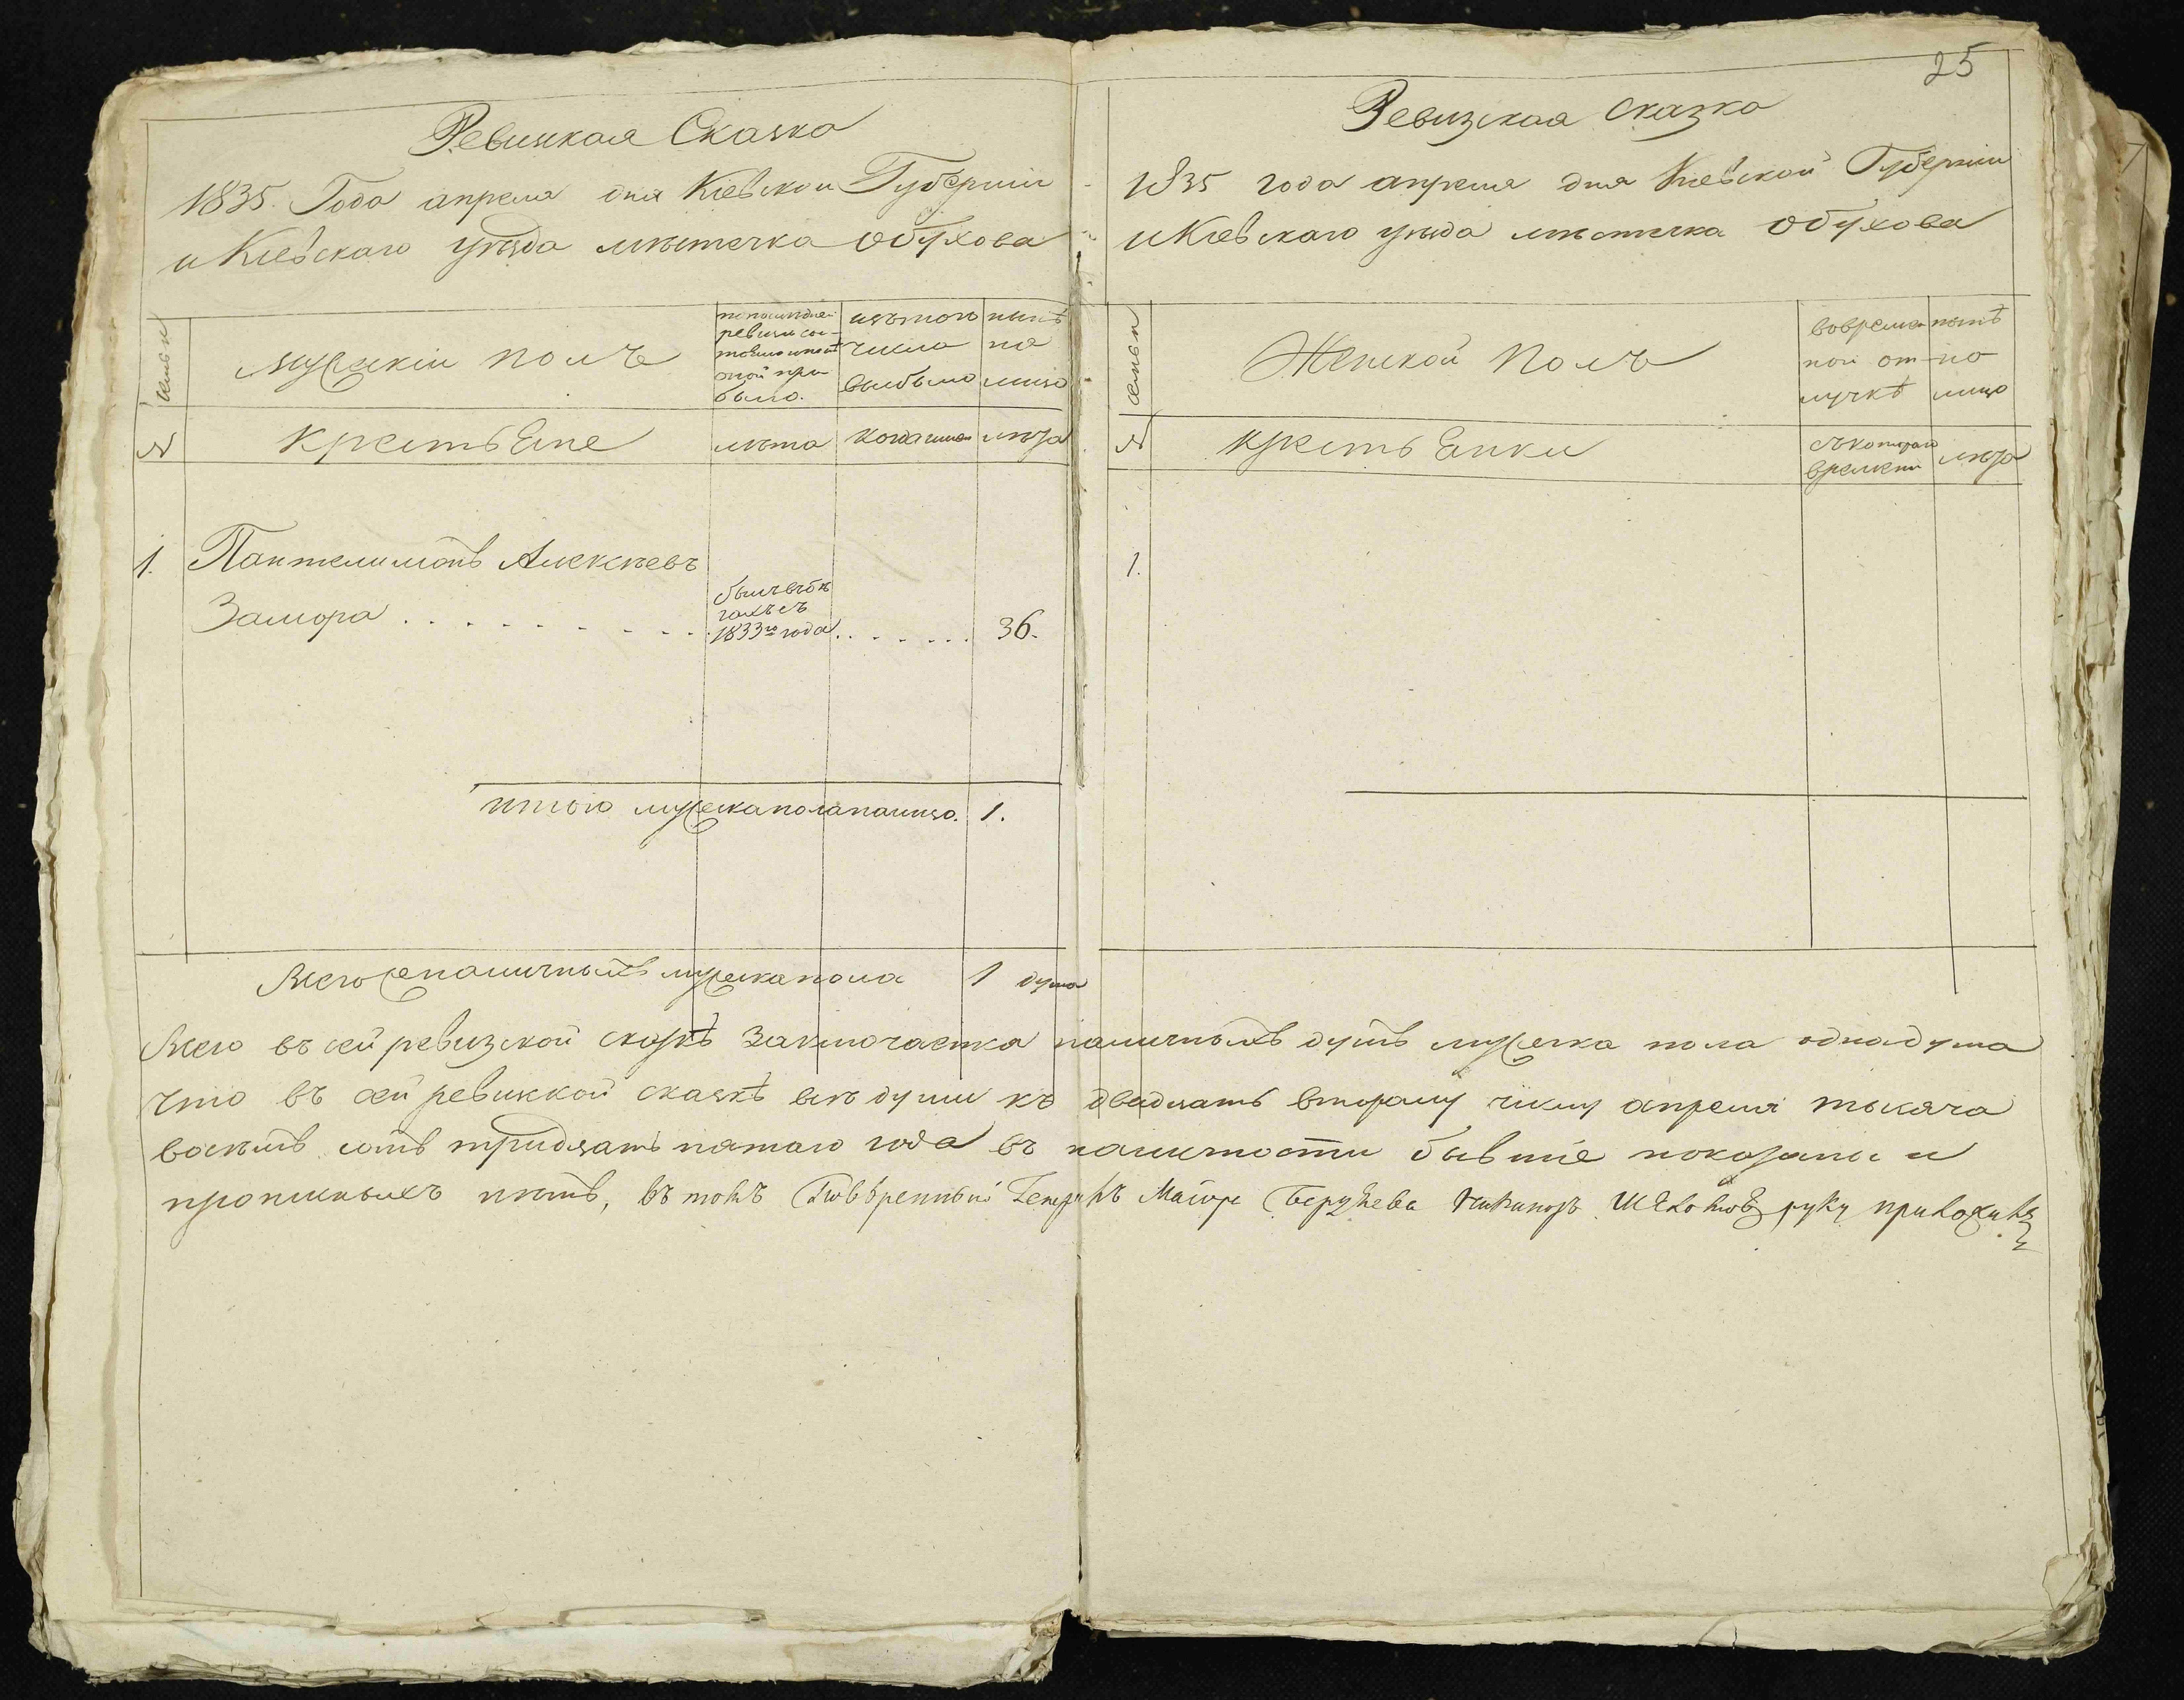 25
Ревизкая Сказка
1835. Года апреля дня Кіевской Губерніи
и Кіевскаго уѣзда мѣстечка Обухова
семьи
мужскій полъ
по последней
ревизіи сос-
тояло и послѣ
оной при
было.
изътого
числа
выбыло
нынѣ
на
лицо
№
крестьЕне
лѣта
когда именно
лѣта
1.
Пантелимонъ Алексѣевъ
Замора
былъ въ бѣ
гахъ съ
1833го года
36.
итого мужеска пола налицо. 1.
Всего наличныхъ мужеска пола 1 душа
Ревизская сказка
1835 года апреля дня Кіевской Губерніи
и Кіевскаго уѣзда мѣстечка Обухова
семьи
Женской полъ
вовремен
ной от-
лучкѣ
нынѣ
на
лицо
№
крестьЕнки
съ котораго
времени
лѣта
1.
Всего въ сей ревизской сказкѣ Заключается наличныхъ душъ мужеска пола однадуша
что въ сей ревизкой сказкѣ всѣ души къ двадцать второму числу апреля тысяча
восемъ сотъ тридцать пятаго года въ наличности бывшіе показаны и
прописныхъ нѣтъ, въ томъ Повѣренный Генералъ Маіора Бердяева руку приложилъ